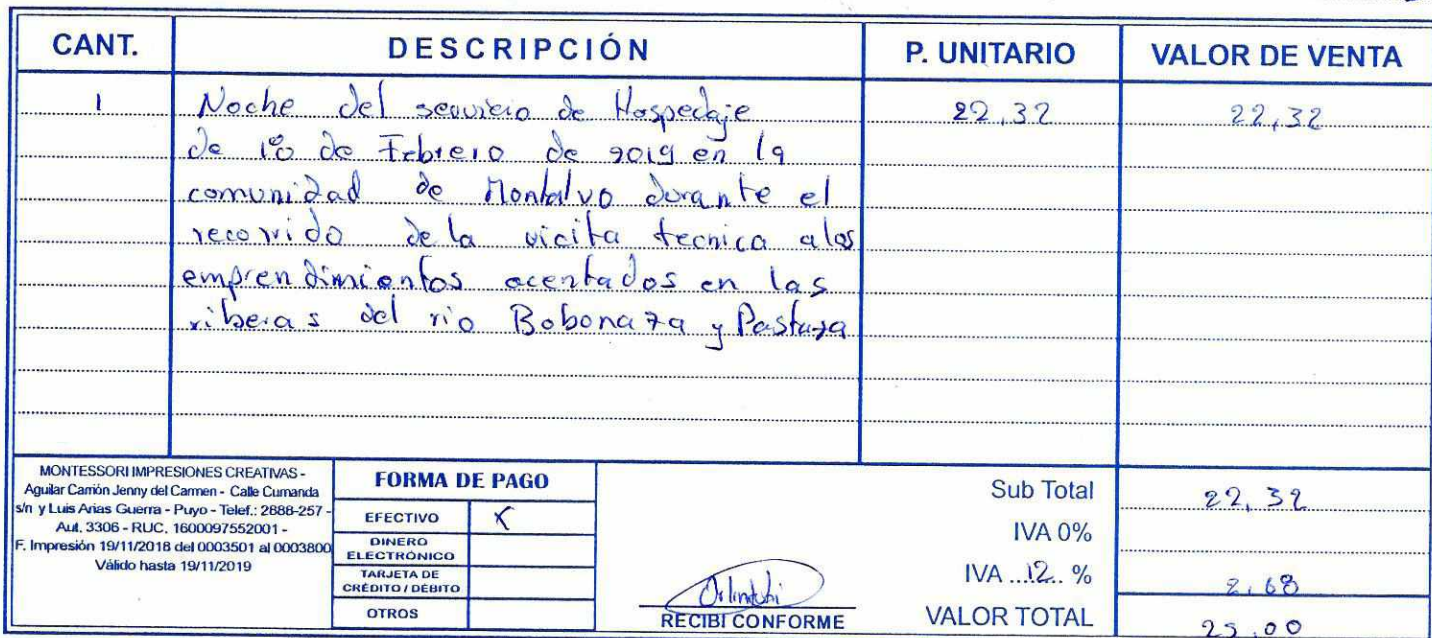 CANT. DESCRIPCIÓN P. UNITARIO VALOR DE VENTA
1 Noche del servicio de Hospedaje 22,32 22,32
de de Febrero de 2019 en la
comunidad de Montalvo durante el
recorrido de la vicita tecnica a los
emprendimientos acentados en las
riberas del rio Bobonaza y Pastaza
MONTESSORI IMPRESIONES CREATIVAS -
Aguilar Carrión Jenny del Carmen - Calle Cumanda
s/n y Luis Arias Guerra - Puyo - Telef.: 2888-257 -
Aut. 3306 - RUC. 1600097552001 -
F. Impresión 19/11/2018 del 0003501 al 0003800
Válido hasta 19/11/2019
FORMA DE PAGO
EFECTIVO X
DINERO
ELECTRÓNICO
TARJETA DE
CRÉDITO / DÉBITO
OTROS
RECIBI CONFORME
Sub Total 22,32
IVA 0%
IVA ...12.. % 2,68
VALOR TOTAL 25,00